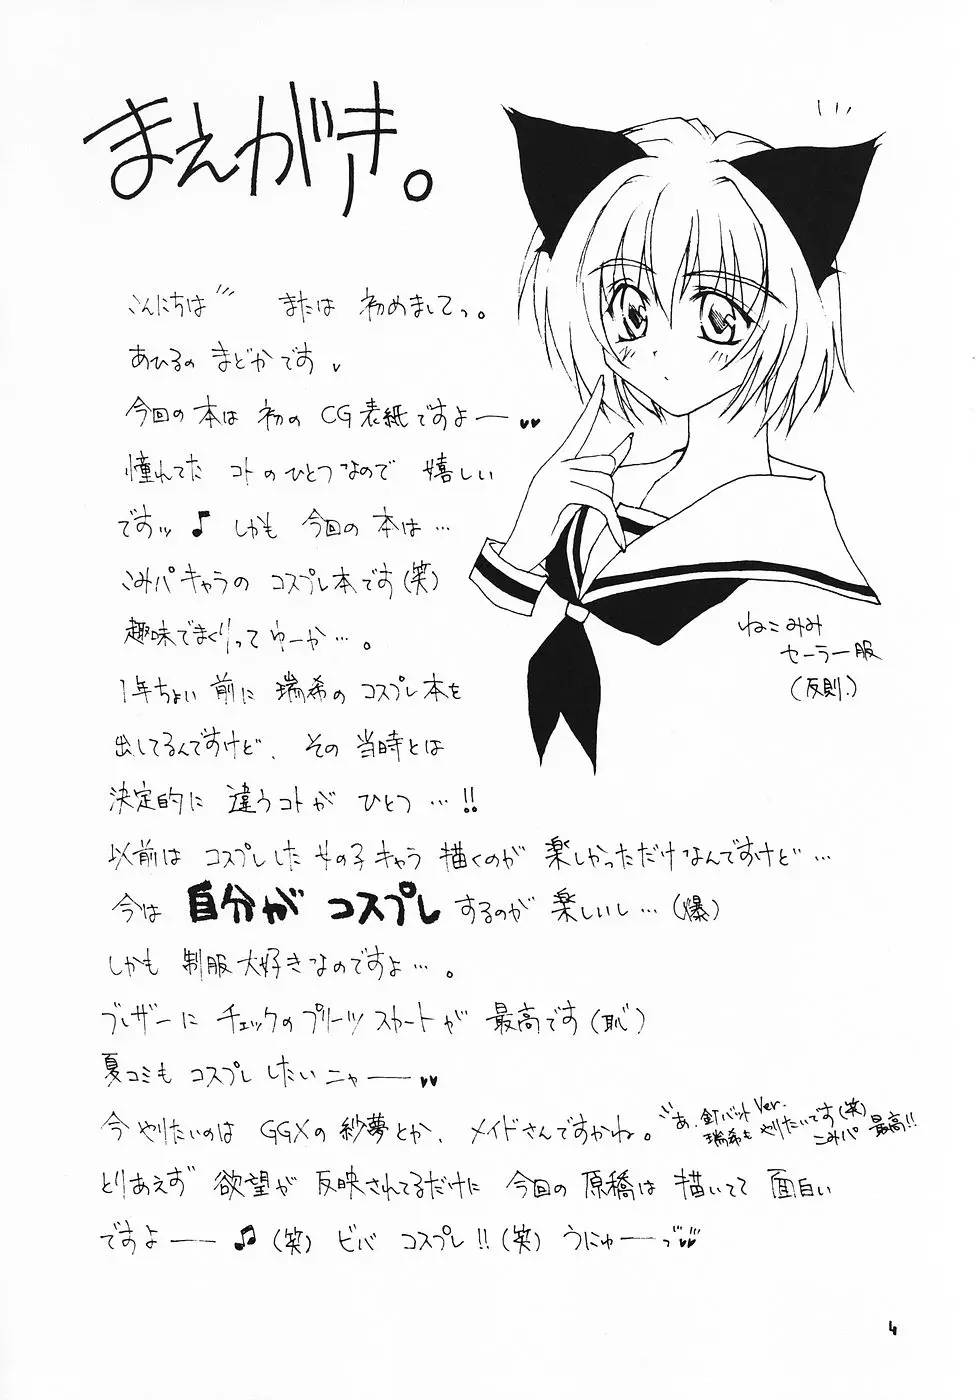 まえがき。
こんにちは〃 または 初めましてっ。
あひるの まどかです
今回の 本は 初の CG表紙ですよー♥♥
憧れてた コトの ひとつなので 嬉しい
ですッ♪ しかも 今回の 本は…
こみパキャラの コスプレ本です(笑)
趣味でまくりって ゆーか…。
1年ちょい 前に 瑞希の コスプレ本を
出してるんですけど、その 当時とは
決定的に 違うコトが ひとつ…!!
以前は コスプレした 女の子キャラ 描くのが 楽しかっただけなんですけど…
今は 自分が コスプレ するのが 楽しいし…(爆)
しかも 制服大好きなのですよ…。
ブレザーに チェックの プリーツ スカートが 最高です(恥)
夏コミも コスプレ したいニャー♥♥
今 やりたいのは GGXの 紗夢とか、メイドさんですかね。
あ、釘バット Ver.
瑞希も やりたいです(笑)
こみパ 最高!!
とりあえず 欲望が 反映されてるだけに 今回の 原稿は 描いてて 面白い
ですよー♫(笑) ビバ コスプレ!!(笑) うにゅーっ♥♥
ねこみみ
セーラー服
(反則。)
4